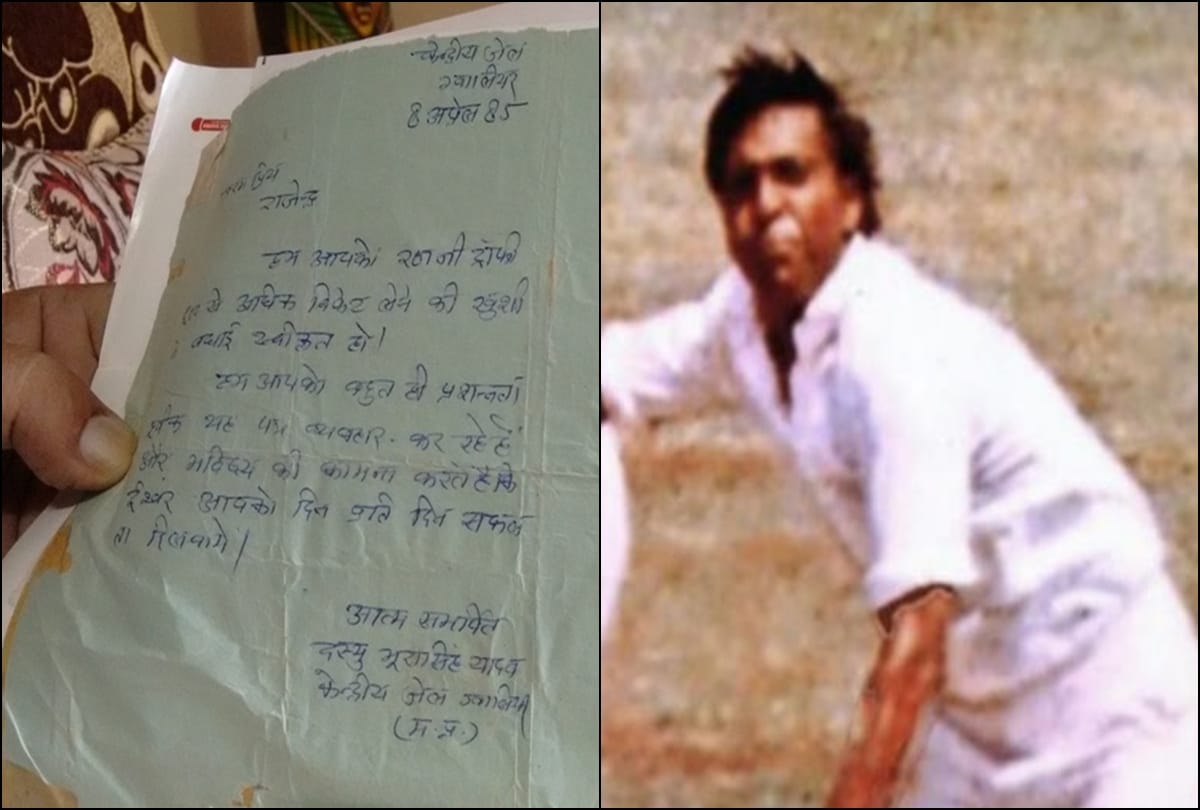 केन्द्रीय जेल
ग्वालियर
8 अप्रेल 85
प्रिय
राजेन्द्र
हम आपको रणजी ट्रॉफी
से अधिक विकेट लेने की खुशी
बधाई स्वीकृत हो।
हम आपको बहुत ही प्रशन्नता
यह पत्र व्यवहार कर रहे हैं
और भविष्य की कामना करते है कि
ईश्वर आपको दिन प्रति दिन सफल
ता दिलवाये।
आत्म समर्पित
दस्यु मूसासिंह यादव
केन्द्रीय जेल ग्वालियर
(म.प्र.)